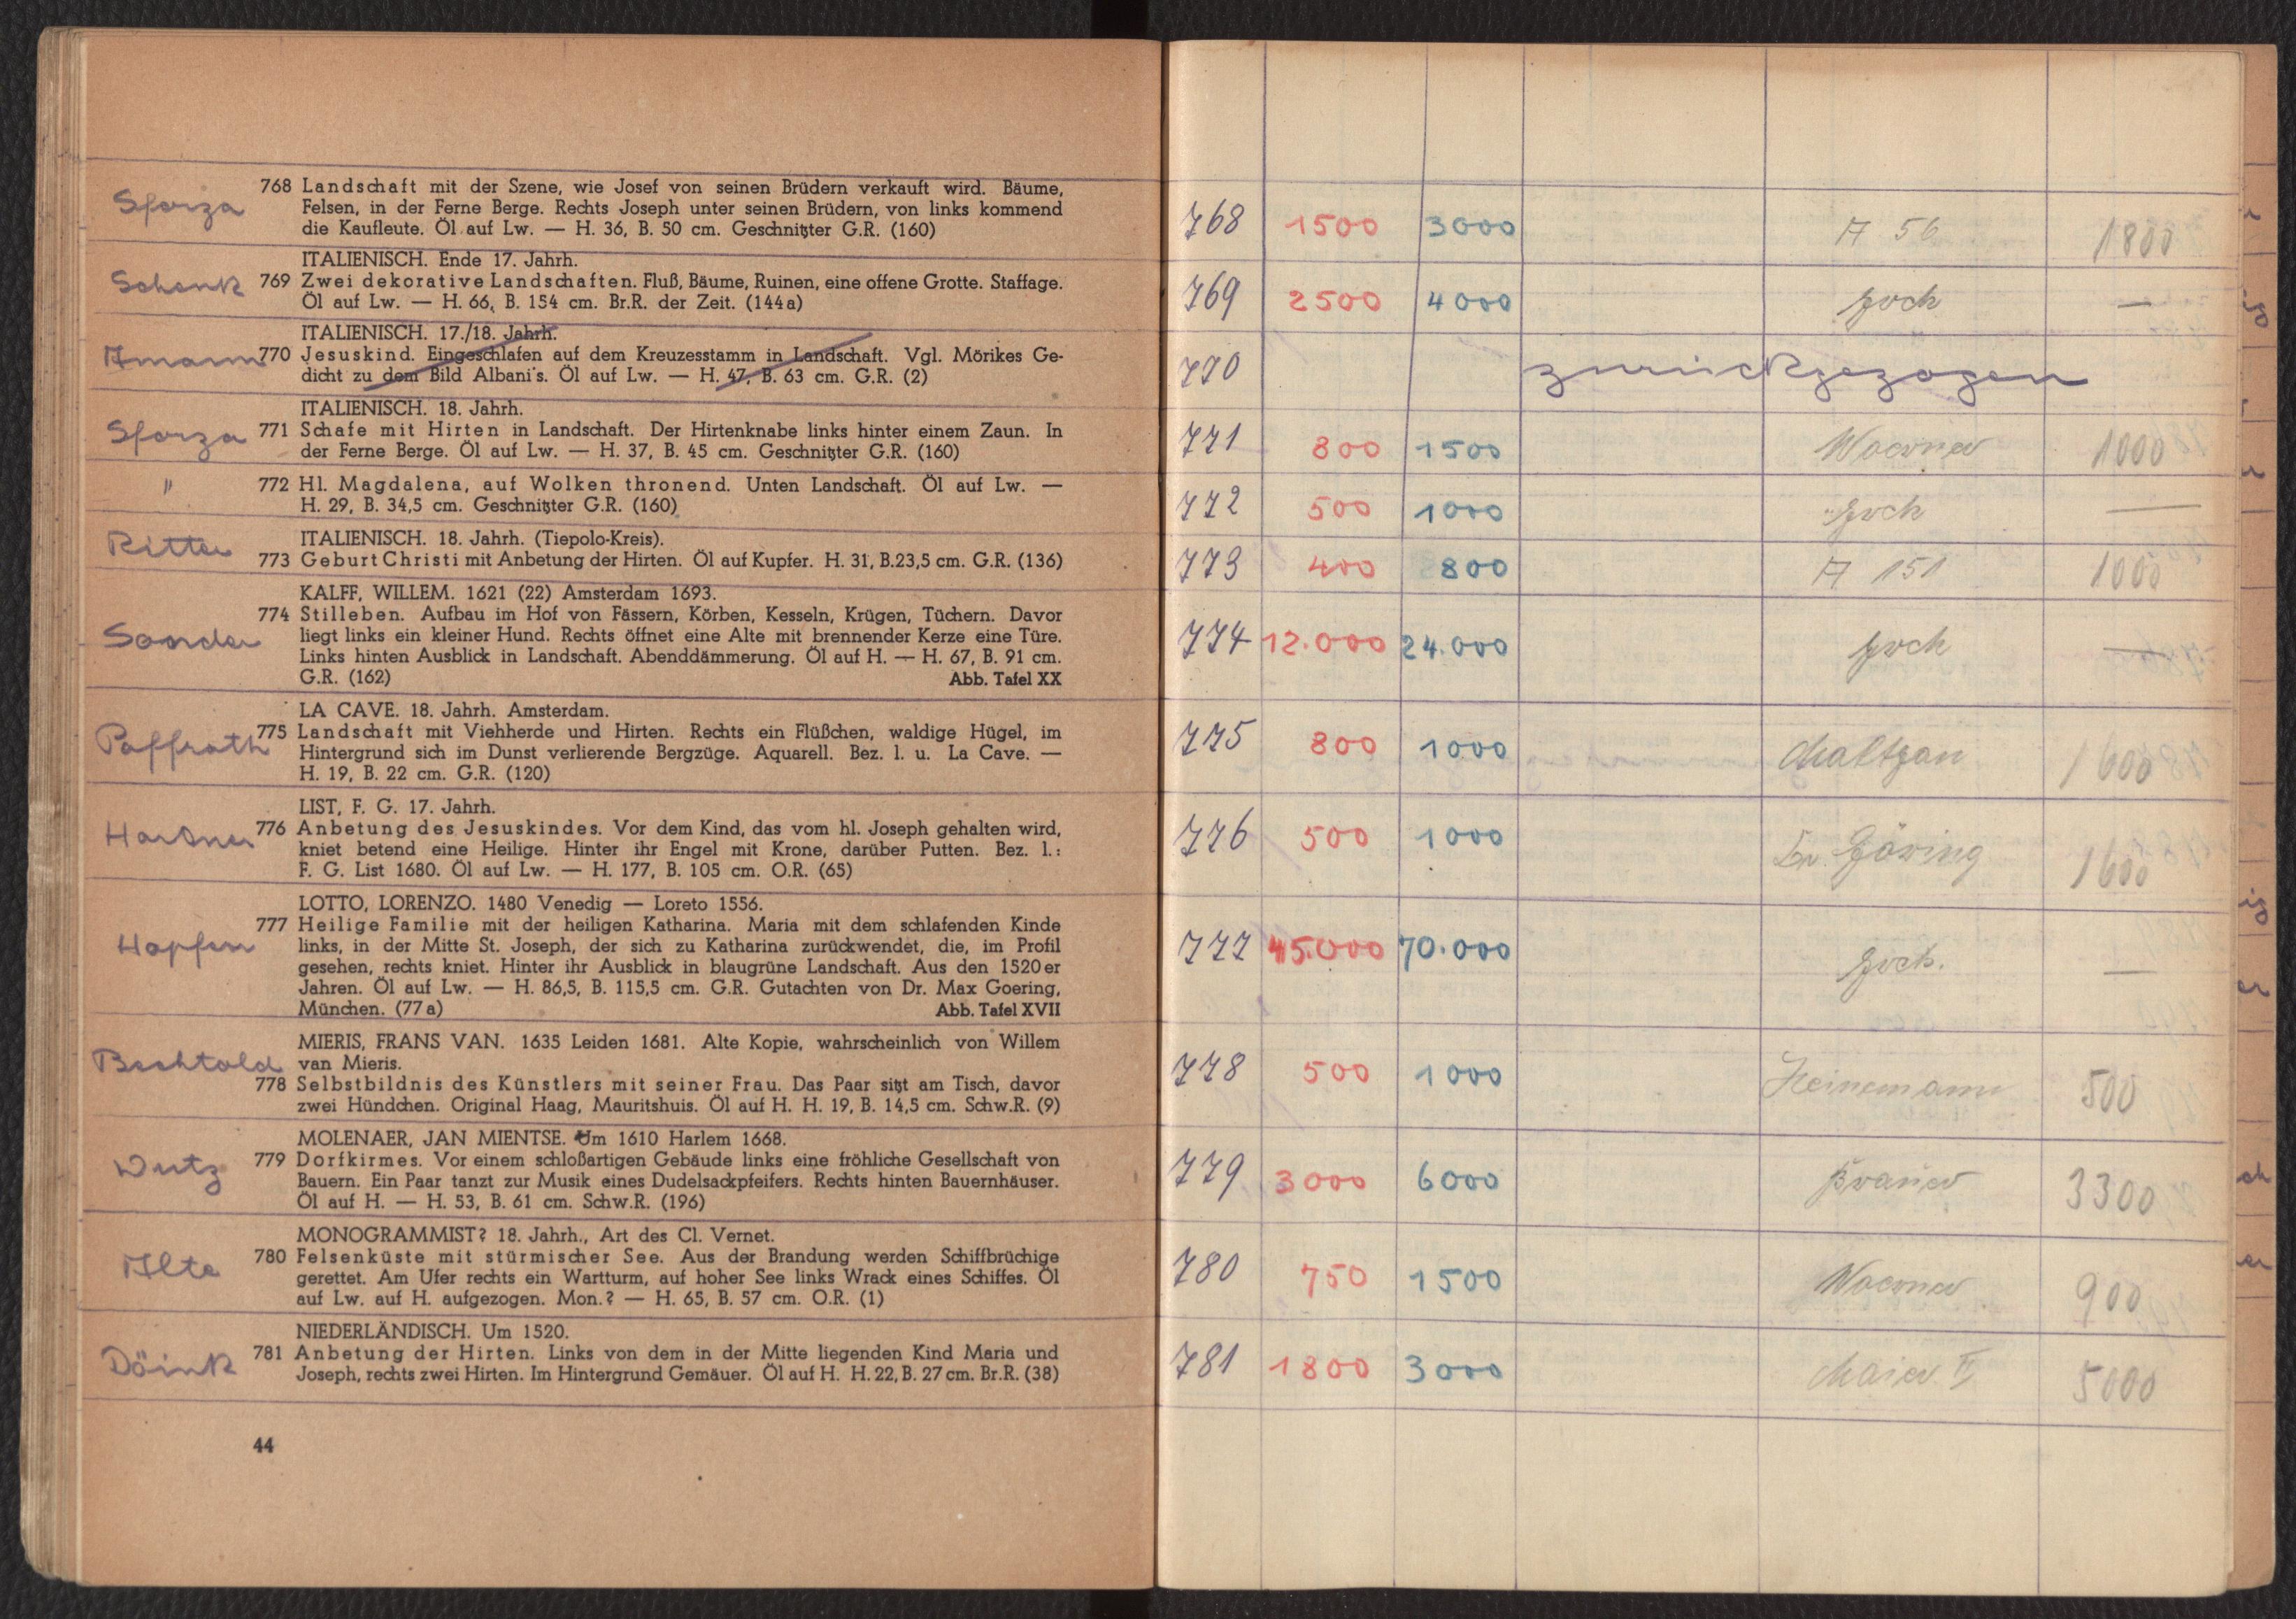 Sforza
768 Landschaft mit der Szene, wie Josef von seinen Brüdern verkauft wird. Bäume,
Felsen, in der Ferne Berge. Rechts Joseph unter seinen Brüdern, von links kommend
die Kaufleute. Öl auf Lw. — H. 36, B. 50 cm. Geschnitzter G.R. (160)
ITALIENISCH. Ende 17. Jahrh.
Schenk
769 Zwei dekorative Landschaften. Fluß, Bäume, Ruinen, eine offene Grotte. Staffage.
Öl auf Lw. — H. 66, B. 154 cm. Br.R. der Zeit. (144a)
ITALIENISCH. 17./18. Jahrh.
Amann
770 Jesuskind. Eingeschlafen auf dem Kreuzesstamm in Landschaft. Vgl. Mörikes Ge-
dicht zu dem Bild Albani's. Öl auf Lw. — H. 47, B. 63 cm. G.R. (2)
ITALIENISCH. 18. Jahrh.
Sforza
771 Schafe mit Hirten in Landschaft. Der Hirtenknabe links hinter einem Zaun. In
der Ferne Berge. Öl auf Lw. — H. 37, B. 45 cm. Geschnitzter G.R. (160)
"
772 Hl. Magdalena, auf Wolken thronend. Unten Landschaft. Öl auf Lw. —
H. 29, B. 34,5 cm. Geschnitzter G.R. (160)
Ritter
ITALIENISCH. 18. Jahrh. (Tiepolo-Kreis).
773 Geburt Christi mit Anbetung der Hirten. Öl auf Kupfer. H. 31, B. 23,5 cm. G.R. (136)
KALFF, WILLEM. 1621 (22) Amsterdam 1693.
774 Stilleben. Aufbau im Hof von Fässern, Körben, Kesseln, Krügen, Tüchern. Davor
liegt links ein kleiner Hund. Rechts öffnet eine Alte mit brennender Kerze eine Türe.
Links hinten Ausblick in Landschaft. Abenddämmerung. Öl auf H. — H. 67, B. 91 cm.
G.R. (162) Abb. Tafel XX
LA CAVE. 18. Jahrh. Amsterdam.
Paffrath
775 Landschaft mit Viehherde und Hirten. Rechts ein Flüßchen, waldige Hügel, im
Hintergrund sich im Dunst verlierende Bergzüge. Aquarell. Bez. l. u. La Cave. —
H. 19, B. 22 cm. G.R. (120)
LIST, F. G. 17. Jahrh.
776 Anbetung des Jesuskindes. Vor dem Kind, das vom hl. Joseph gehalten wird,
kniet betend eine Heilige. Hinter ihr Engel mit Krone, darüber Putten. Bez. l.:
F. G. List 1680. Öl auf Lw. — H. 177, B. 105 cm. O.R. (65)
LOTTO, LORENZO. 1480 Venedig — Loreto 1556.
Hopfen
777 Heilige Familie mit der heiligen Katharina. Maria mit dem schlafenden Kinde
links, in der Mitte St. Joseph, der sich zu Katharina zurückwendet, die, im Profil
gesehen, rechts kniet. Hinter ihr Ausblick in blaugrüne Landschaft. Aus den 1520er
Jahren. Öl auf Lw. — H. 86,5, B. 115,5 cm. G.R. Gutachten von Dr. Max Goering,
München. (77a) Abb. Tafel XVII
MIERIS, FRANS VAN. 1635 Leiden 1681. Alte Kopie, wahrscheinlich von Willem
van Mieris.
Bechtold
778 Selbstbildnis des Künstlers mit seiner Frau. Das Paar sitzt am Tisch, davor
zwei Hündchen. Original Haag, Mauritshuis. Öl auf H. H. 19, B. 14,5 cm. Schw.R. (9)
MOLENAER, JAN MIENTSE. Um 1610 Harlem 1668.
Wutz
779 Dorfkirmes. Vor einem schloßartigen Gebäude links eine fröhliche Gesellschaft von
Bauern. Ein Paar tanzt zur Musik eines Dudelsackpfeifers. Rechts hinten Bauernhäuser.
Öl auf H. — H. 53, B. 61 cm. Schw.R. (196)
MONOGRAMMIST? 18. Jahrh., Art des Cl. Vernet.
780 Felsenküste mit stürmischer See. Aus der Brandung werden Schiffbrüchige
gerettet. Am Ufer rechts ein Wartturm, auf hoher See links Wrack eines Schiffes. Öl
auf Lw. auf H. aufgezogen. Mon.? — H. 65, B. 57 cm. O.R. (1)
NIEDERLÄNDISCH. Um 1520.
Döink
781 Anbetung der Hirten. Links von dem in der Mitte liegenden Kind Maria und
Joseph, rechts zwei Hirten. Im Hintergrund Gemäuer. Öl auf H. H. 22, B. 27 cm. Br.R. (38)
44
768 1500 3000 A 56 1800
769 2500 4000 zck —
770 zurückgezogen
771 800 1500 Wacova 1000
772 500 1000 —
773 400 800 A 151 1000
774 12.000 24.000 —
775 800 1000 Maltzan 1600
776 500 1000 Dr. Göring 1600
777 45.000 70.000 —
778 500 1000 Heinemann 500
779 3000 6000 3300
780 750 1500 900
781 1800 3000 Maier II 5000